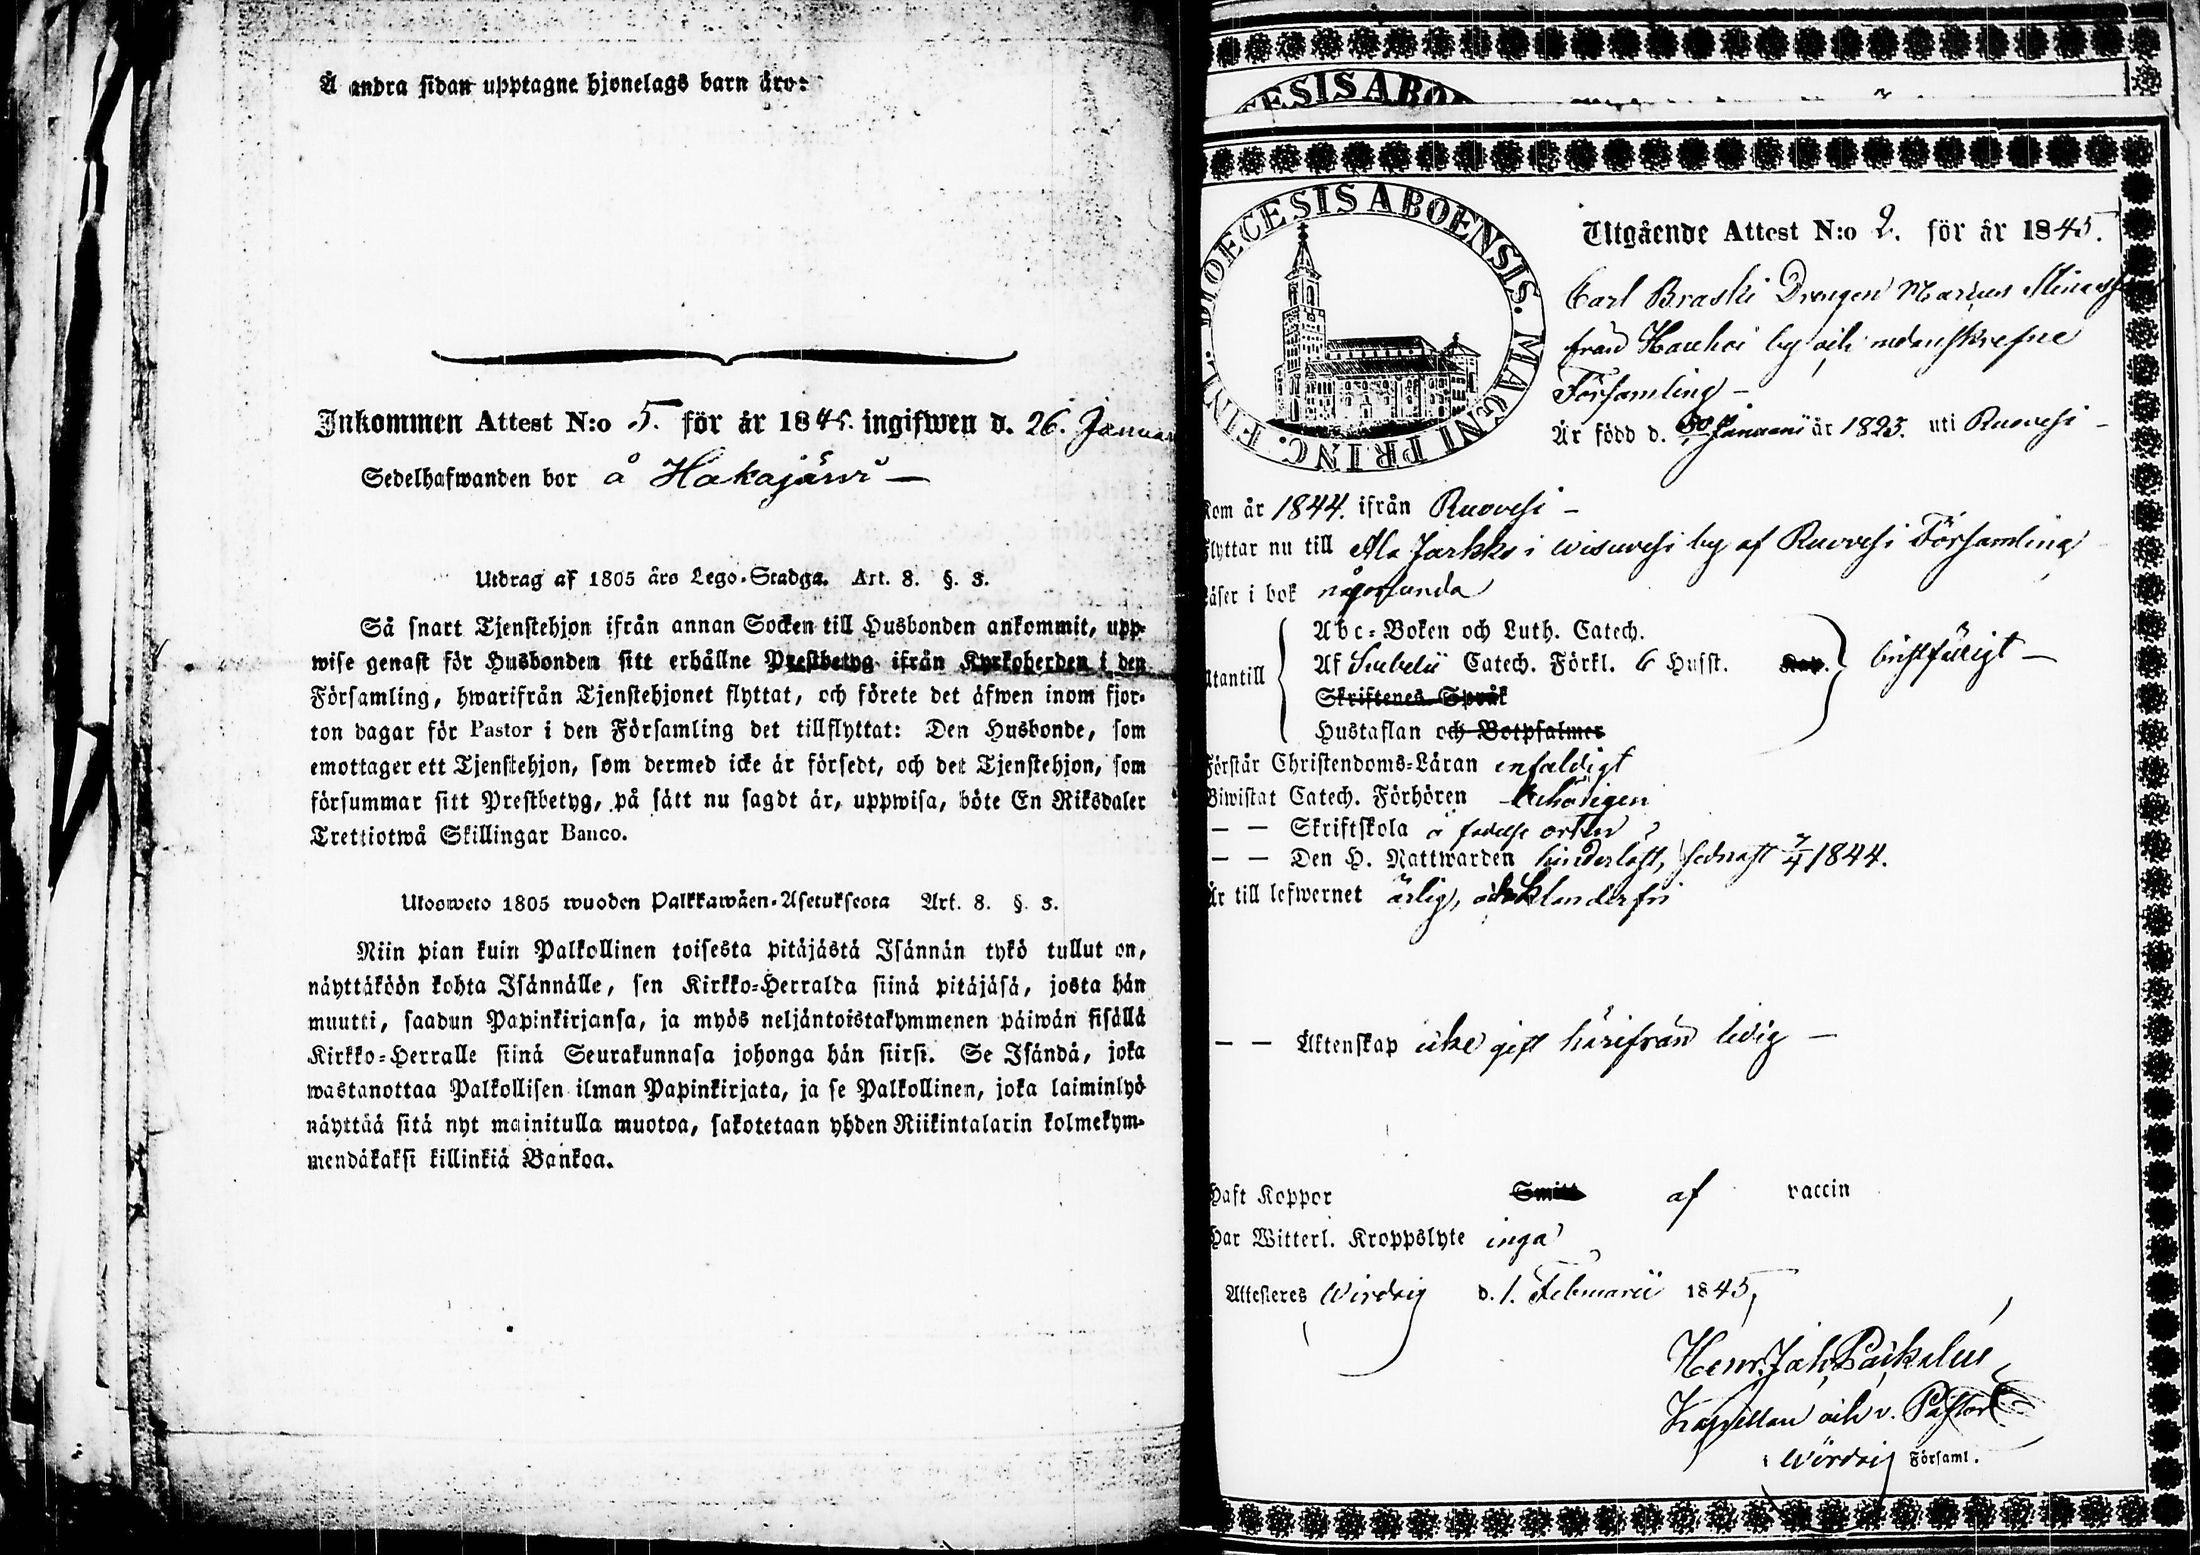 Å andra sidan upptagne hjonelags barn äro:
Inkommen Attest N:o 5. för år 1845. ingifwen d. 26. Januar
Sedelhafwanden bor å Hakajärvi —
Utdrag af 1805 års Lego-Stadga. Art. 8. §. 3.
Så snart Tjenstehjon ifrån annan Socken till Husbonden ankommit, upp-
wise genast för Husbonden sitt erhållne Prestbetyg ifrån Kyrkoherden i den
Församling, hwarifrån Tjenstehjonet flyttat, och förete det äfwen inom fjor-
ton dagar för Pastor i den Församling det tillflyttat: Den Husbonde, som
emottager ett Tjenstehjon, som dermed icke är försedt, och det Tjenstehjon, som
försummar sitt Prestbetyg, på sätt nu sagdt är, uppwisa, böte En Riksdaler
Trettiotwå Skillingar Banco.
Ulosweto 1805 wuoden Palkkawäen-Asetuksesta Art. 8. §. 3.
Niin pian kuin Palkollinen toisesta pitäjästä Isännän tykö tullut on,
näyttäköön kohta Isännälle, sen Kirkko-Herralda siinä pitäjäsä, josta hän
muutti, saadun Papinkirjansa, ja myös neljäntoistakymmenen päiwän sisällä
Kirkko-Herralle siinä Seurakunnasa johonga hän siirsi. Se Isändä, joka
wastanottaa Palkollisen ilman Papinkirjata, ja se Palkollinen, joka laiminlyö
näyttää sitä nyt mainitulla muotoa, sakotetaan yhden Riikintalarin kolmekym-
mendäkaksi killinkiä Bankoa.
ESIS ABO
DIOECESIS ABOENSIS. MAGNI PRINC. FINL.
Utgående Attest N:o 2. för år 1845.
Carl Braski Drengen Marcus
från Hauhoi by och nedanskrefne
Församling —
Är född d. 30 Januari år 1825. uti Ruovesi —
Kom år 1844. ifrån Ruovesi —
Flyttar nu till Ala Jarkko i Wisuvesi by af Ruovesi Församling
Läser i bok någorlunda
Utantill
Abc-Boken och Luth. Catech.
Af Svebelii Catech. Förkl. 6 Husst. Kap.
Skriftenes Språk
Hustaflan och Botpsalmer
bristfäligt —
Förstår Christendoms-Läran enfaldigt
Biwistat Catech. Förhören behörigen
— — Skriftskola å födelse orten
— — Den H. Nattwarden hinderlöst, sednast 7/4 1844.
Är till lefwernet ärlig, och klanderfri
— — Äktenskap icke gift härifrån ledig —
Haft Koppor Smitt af vaccin
Har Witterl. Kroppslyte inga
Attesteres Wirdois d. 1. Februarii 1845,
Henr. Joh.
Kapellan och v. Pastor
i Wirdois Församl.